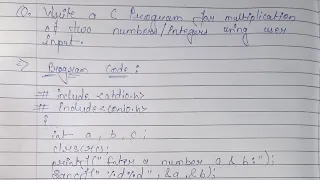 Q. Write a C Program for multiplication
of two numbers/integers using user
input.
⇒ Program Code :
# include <stdio.h>
# include <conio.h>
{
int a, b, c ;
clrscr();
printf(" Enter a number a & b: ");
scanf(" %d%d", &a, &b);